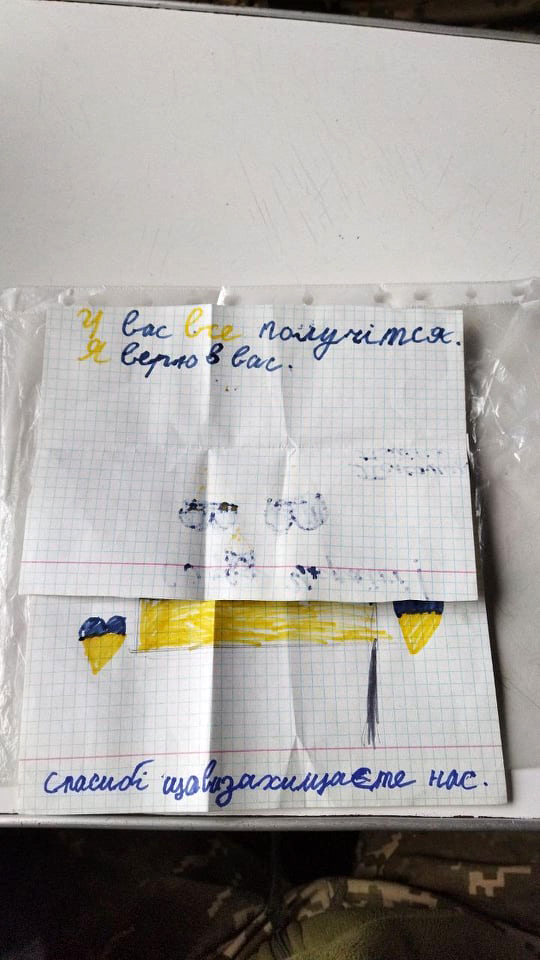 У вас все получітся.
Я верю в вас.
Спасибі що ви захищаєте нас.